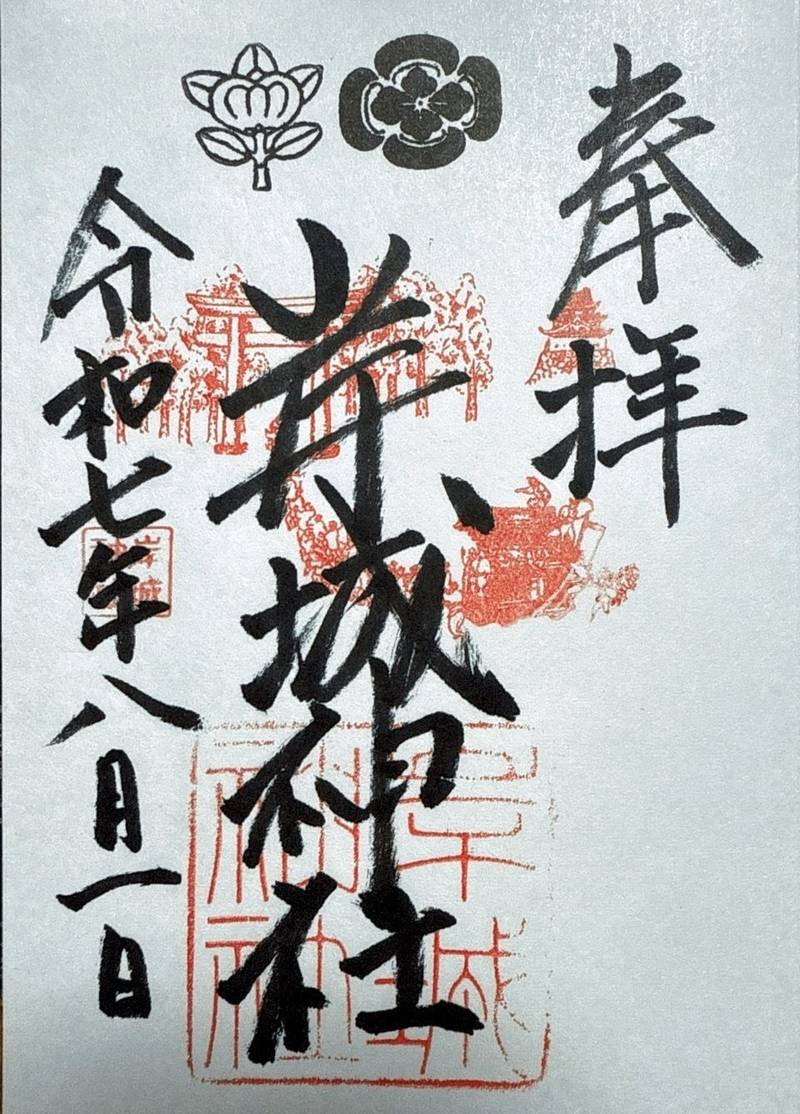 奉拝
岸城神社
令和七年八月一日
岸城神社